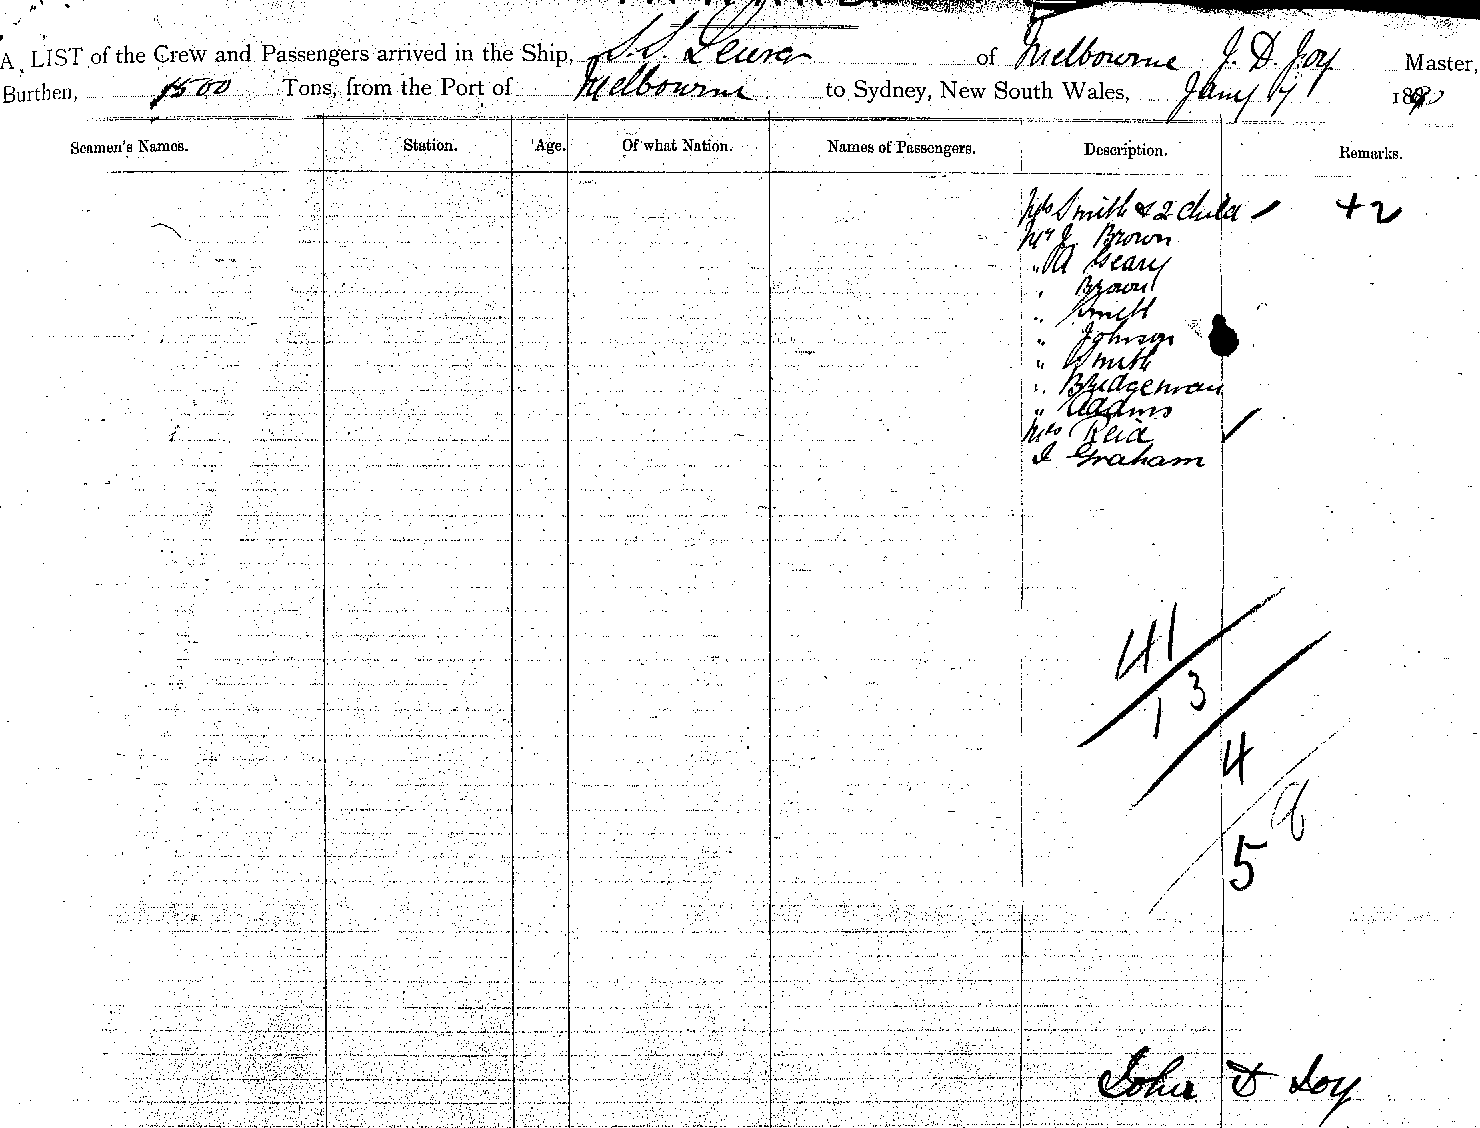 A LIST of the Crew and Passengers arrived in the Ship, S.S. Leura of Melbourne J. D. Joy Master,
Burthen, 1500 Tons, from the Port of Melbourne to Sydney, New South Wales, Jany 7 18
Seamen's Names. Station. Age. Of what Nation. Names of Passengers. Description. Remarks.
Mrs Smith & 2 child +2
Mr J. Brown
" Geary
" Brown
" Smith
" Johnson
" Smith
" Bridgeman
" Addms
Mrs Reid
I Graham
41
13
4
8
5
John D Joy